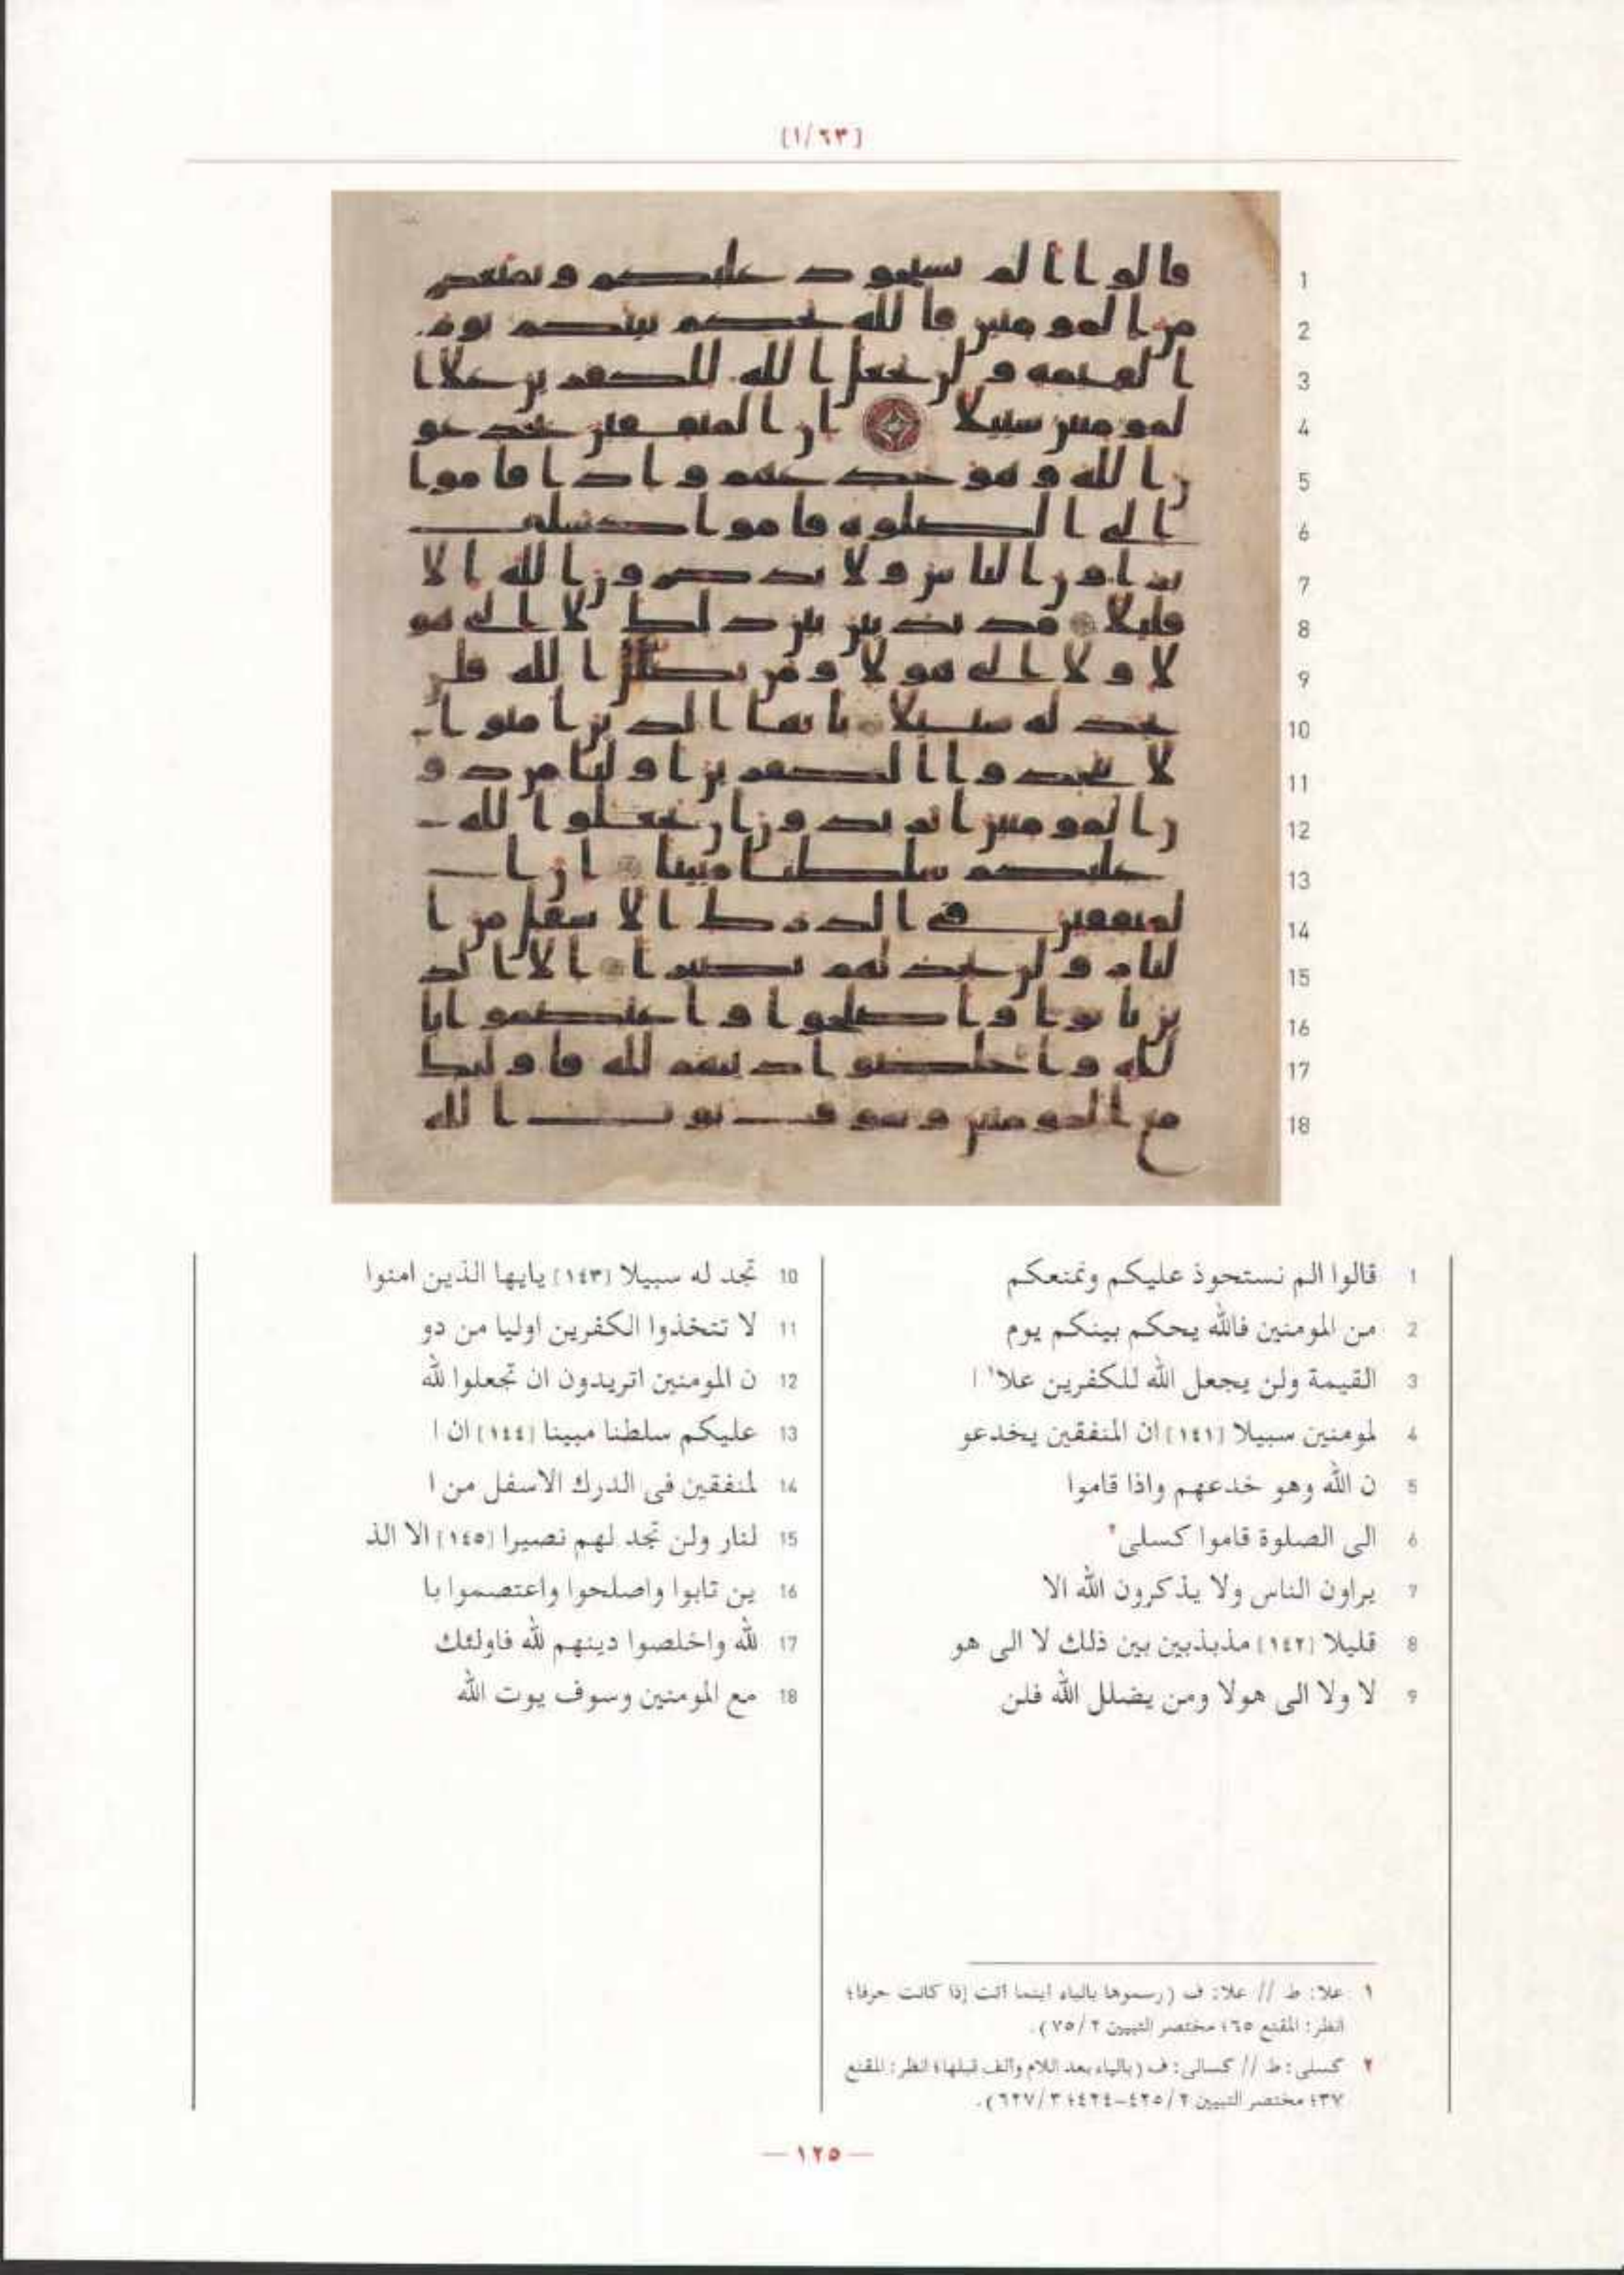 [١/٦٣]
1
2
3
4
5
6
7
8
9
10
11
12
13
14
15
16
17
18
1 قالوا الم نستحوذ عليكم ونمنعكم
2 من المومنين فالله يحكم بينكم يوم
3 القيمة ولن يجعل الله للكفرين علا١ ا
4 لمومنين سبيلا [١٤١] ان المنفقين يخدعو
5 ن الله وهو خدعهم واذا قاموا
6 الى الصلوة قاموا كسلى٢
7 يراون الناس ولا يذكرون الله الا
8 قليلا [١٤٢] مذبذبين بين ذلك لا الى هو
9 لا ولا الى هولا ومن يضلل الله فلن
10 تجد له سبيلا [١٤٣] يايها الذين امنوا
11 لا تتخذوا الكفرين اوليا من دو
12 ن المومنين اتريدون ان تجعلوا لله
13 عليكم سلطنا مبينا [١٤٤] ان ا
14 لمنفقين فى الدرك الاسفل من ا
15 لنار ولن تجد لهم نصيرا [١٤٥] الا الذ
16 ين تابوا واصلحوا واعتصموا با
17 لله واخلصوا دينهم لله فاولئك
18 مع المومنين وسوف يوت الله
١ علا: ط // علا: ف (رسموها بالياء اينما أتت إذا كانت حرفا؛
انظر: المقنع ٦٥؛ مختصر التبيين ٢/ ٧٥).
٢ كسلى: ط // كسالى: ف (بالياء بعد اللام وألف قبلها؛ انظر: المقنع
٣٧؛ مختصر التبيين ٢/ ٤٢٥-٤٢٤؛ ٣/ ٦٢٧).
— ١٢٥ —